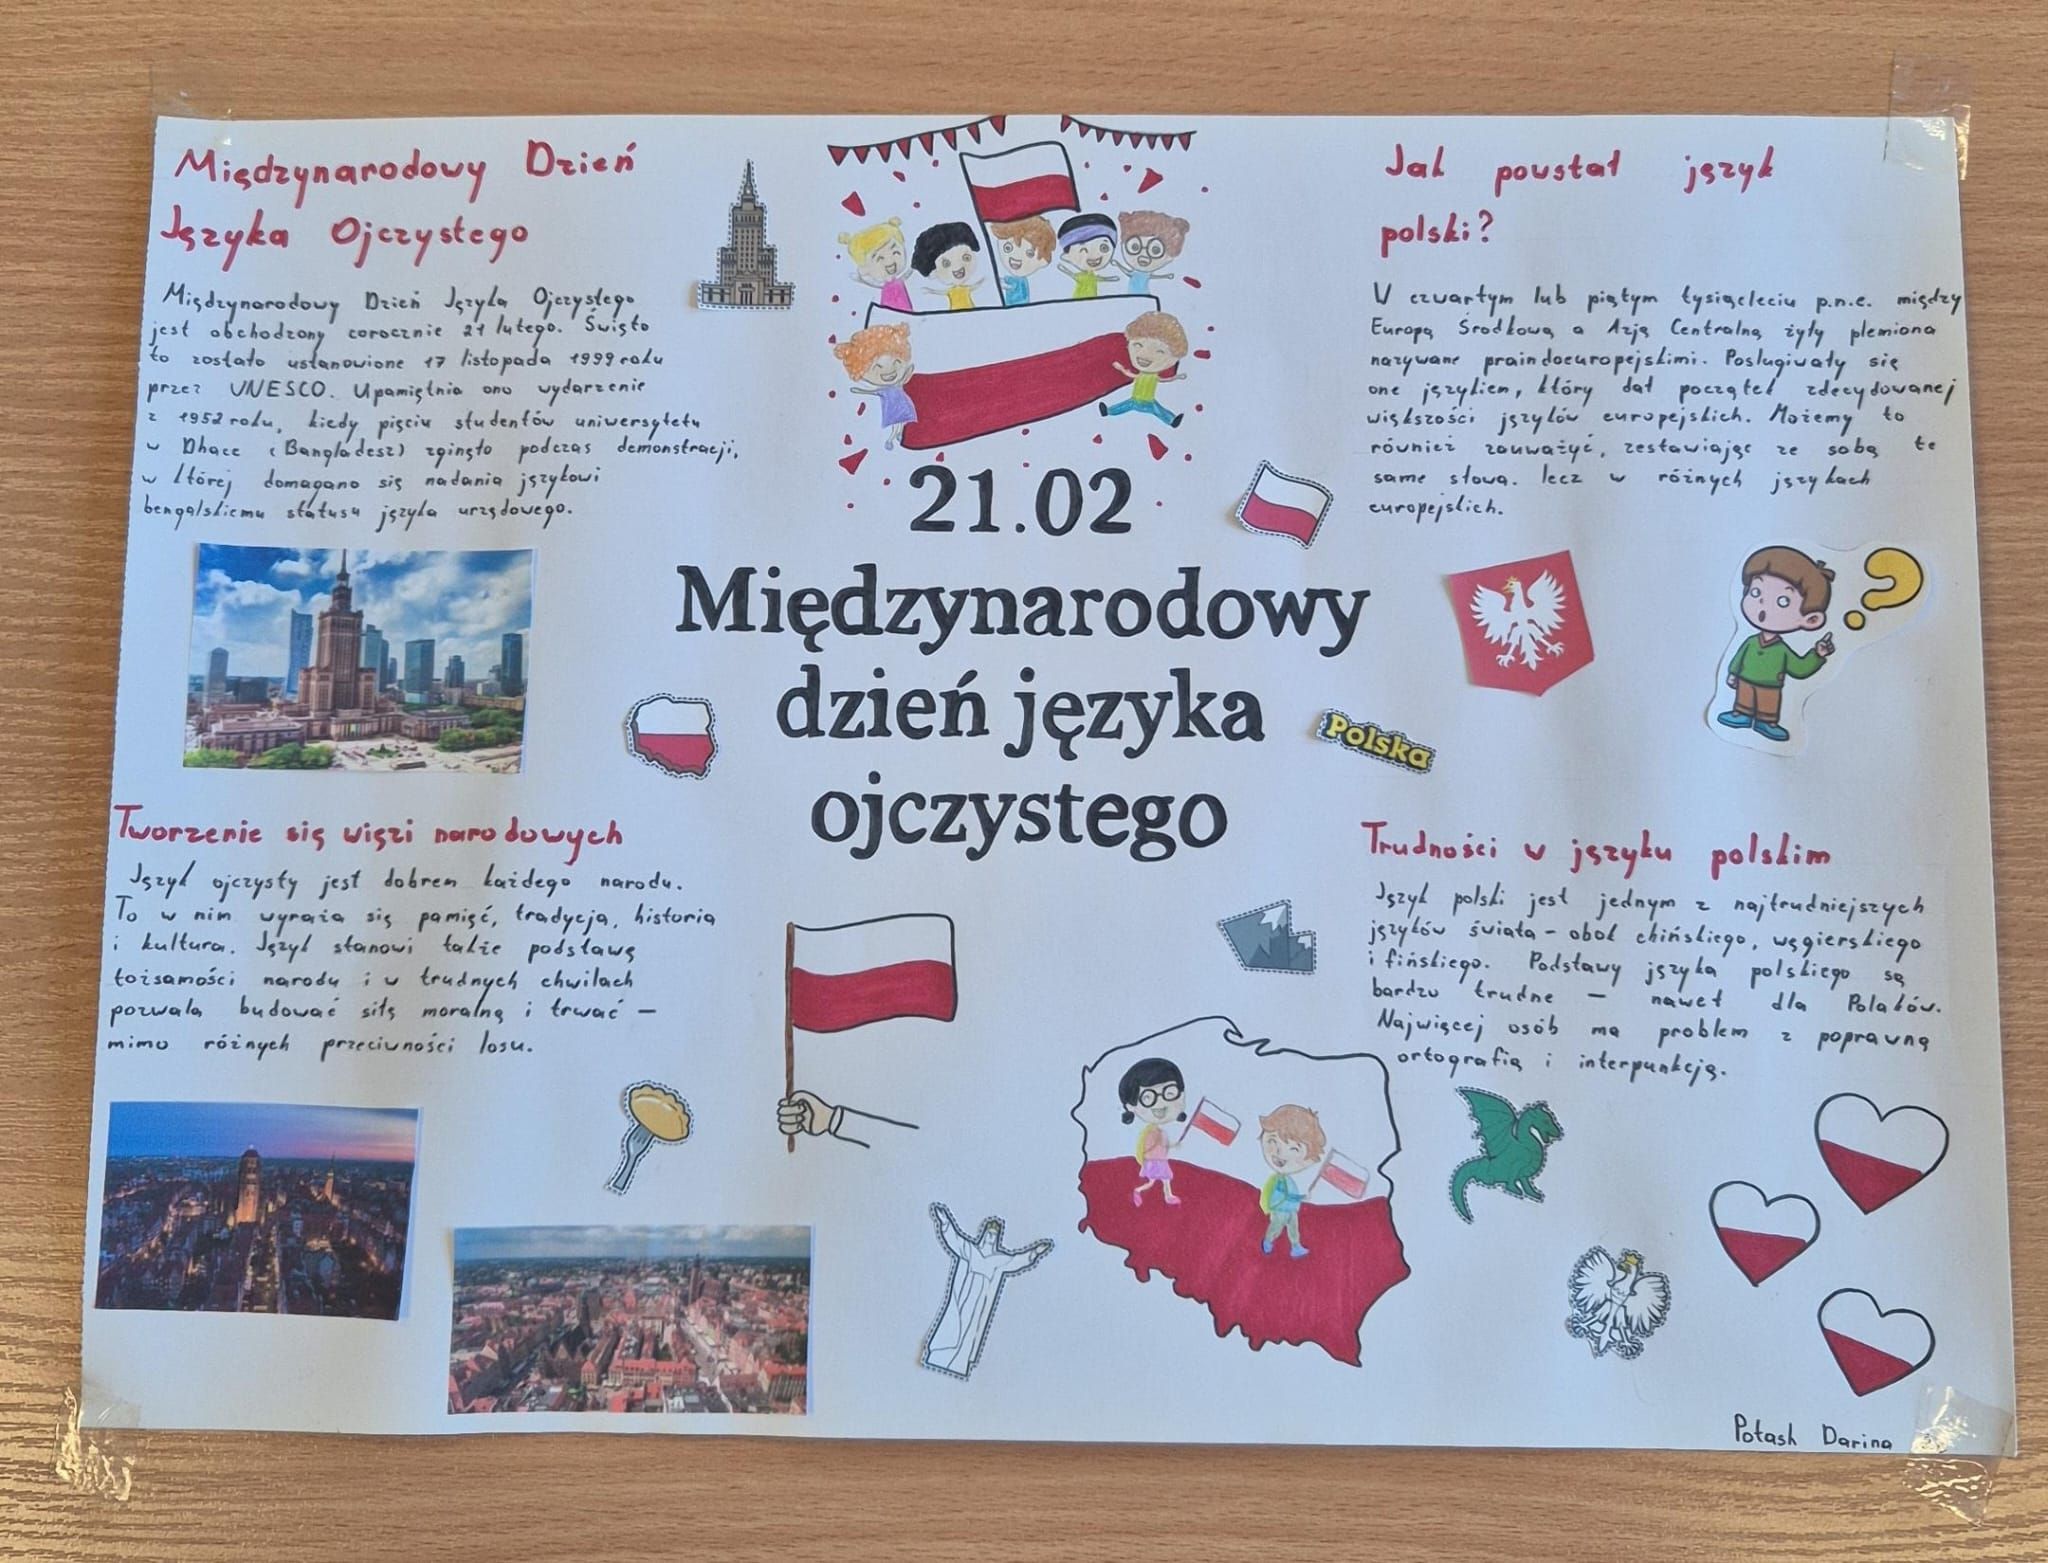 Międzynarodowy Dzień
Języka Ojczystego
Międzynarodowy Dzień Języka Ojczystego
jest obchodzony corocznie 21 lutego. Święto
to zostało ustanowione 17 listopada 1999 roku
przez UNESCO. Upamiętnia ono wydarzenie
z 1952 roku, kiedy pięciu studentów uniwersytetu
w Dhace (Bangladesz) zginęło podczas demonstracji,
w której domagano się nadania językowi
bengalskiemu statusu języka urzędowego.
Tworzenie się więzi narodowych
Język ojczysty jest dobrem każdego narodu.
To w nim wyraża się pamięć, tradycja, historia
i kultura. Język stanowi także podstawę
tożsamości narodu i w trudnych chwilach
pozwala budować siłę moralną i trwać —
mimo różnych przeciwności losu.
21.02
Międzynarodowy
dzień języka
ojczystego
Jak powstał język
polski?
W czwartym lub piątym tysiącleciu p.n.e. między
Europą Środkową a Azją Centralną żyły plemiona
nazywane praindoeuropejskimi. Posługiwały się
one językiem, który dał początek zdecydowanej
większości języków europejskich. Możemy to
również zauważyć, zestawiając ze sobą te
same słowa. lecz w różnych językach
europejskich.
Polska
Trudności w języku polskim
Język polski jest jednym z najtrudniejszych
języków świata – obok chińskiego, węgierskiego
i fińskiego. Podstawy języka polskiego są
bardzo trudne – nawet dla Polaków.
Najwięcej osób ma problem z poprawną
ortografią i interpunkcją.
Potash Darina